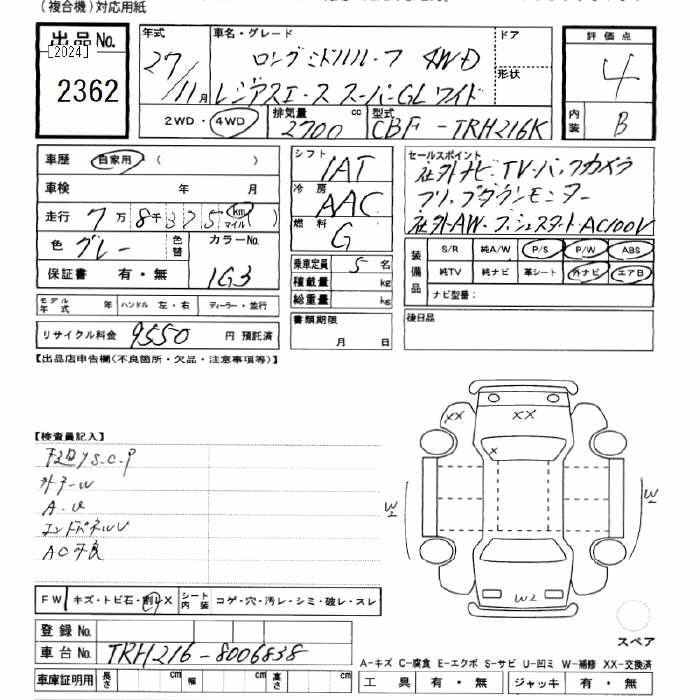 (複合機)対応用紙
出品No.
[2024]
2362
年式 27/11月
車名・グレード ロングミドルルーフ 4WD
レジアスエース スーパーGL ワイド
ドア
形状
評価点 4
内装 B
2WD・4WD
排気量 2700 cc
型式 CBF-TRH216K
車歴 自家用 ( )
車検 年 月
走行 7万 8千 375 km マイル
色 グレー 色替
カラーNo. 1G3
保証書 有・無
シフト IAT
冷房 AAC
燃料 G
乗車定員 5名
積載量 kg
総重量 kg
セールスポイント
社外ナビ・TV・バックカメラ
フリップダウンモニター
社外AW・プッシュスタート・AC100V
装備品
S/R 純A/W P/S P/W ABS
純TV 純ナビ 革シート 外ナビ エアB
ナビ型番:
モデル年式 年 ハンドル 左・右 ディーラー・並行
リサイクル料金 9550 円 預託済
書類期限 月 日
後日品
【出品店申告欄(不良箇所・欠品・注意事項等)】
【検査員記入】
下回りS.C.P
外ドアーW
A・U
エンドパネルU
AC不良
XX XX
X
W2
FW キズ・トビ石・割レX
シート内装 コゲ・穴・汚レ・シミ・破レ・スレ
登録No.
車台No. TRH216-8006838
車庫証明用 長さ cm 幅 cm 高さ cm
スペア
A-キズ C-腐食 E-エクボ S-サビ U-凹ミ W-補修 XX-交換済
工具 有・無 ジャッキ 有・無